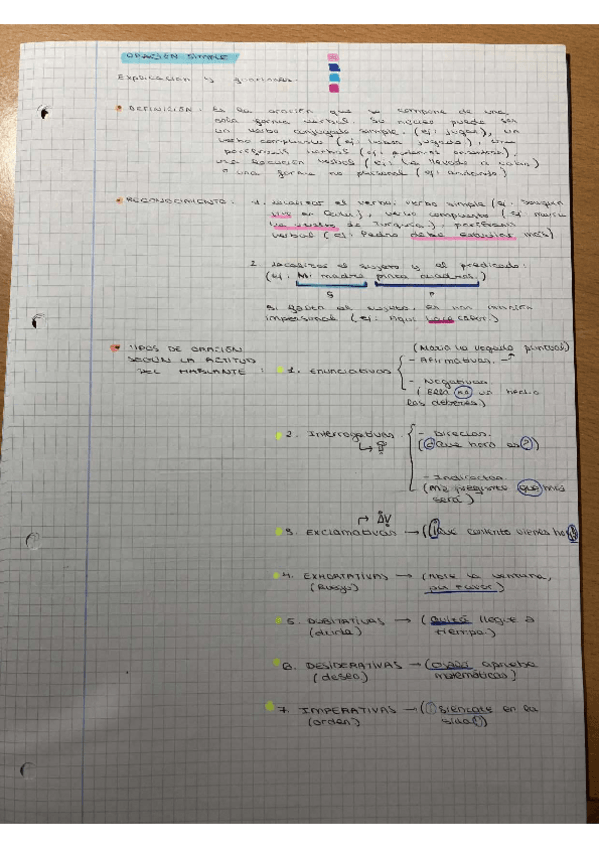 ORACIÓN SIMPLE
Explicación y
DEFINICIÓN. Es la oración que se compone de una
sola forma verbal. Su núcleo puede ser
un verbo conjugado simple. (ej: jugar), un
verbo compuesto (ej: jugado), una
perífrasis verbal (ej:
una locución verbal (ej: ha llevado a cabo)
o una forma no personal (ej: andando)
RECONOCIMIENTO. 1. Localizar el verbo. verbo simple (ej:
vive en), verbo compuesto (ej: María
ha vuelto de Turquía), perífrasis
verbal (ej: Pedro debe estudiar más)
2. Localizar el sujeto y el predicado:
(ej: Mi madre pinta cuadros.)
S P
el sujeto, es una oración
impersonal (ej: Aquí hace calor.)
TIPOS DE ORACIÓN
SEGÚN LA ACTITUD
DEL HABLANTE:
1. Enunciativas
(María ha llegado puntual)
- Afirmativas.
- Negativas
(Ella no ha hecho
los deberes.)
2. Interrogativas
- Directas.
(¿Qué hora es?)
- Indirectas
(Me pregunto qué
será)
3. Exclamativas → (¡Qué contento vienes hoy!)
4. EXHORTATIVAS → (Abre la ventana,
(Ruego) por favor)
5. DUBITATIVAS → (Quizá llegue a
(duda) tiempo.)
6. DESIDERATIVAS → (Ojalá apruebe
(deseo) matemáticas)
7. IMPERATIVAS → (¡Siéntate en la
(orden) silla!)